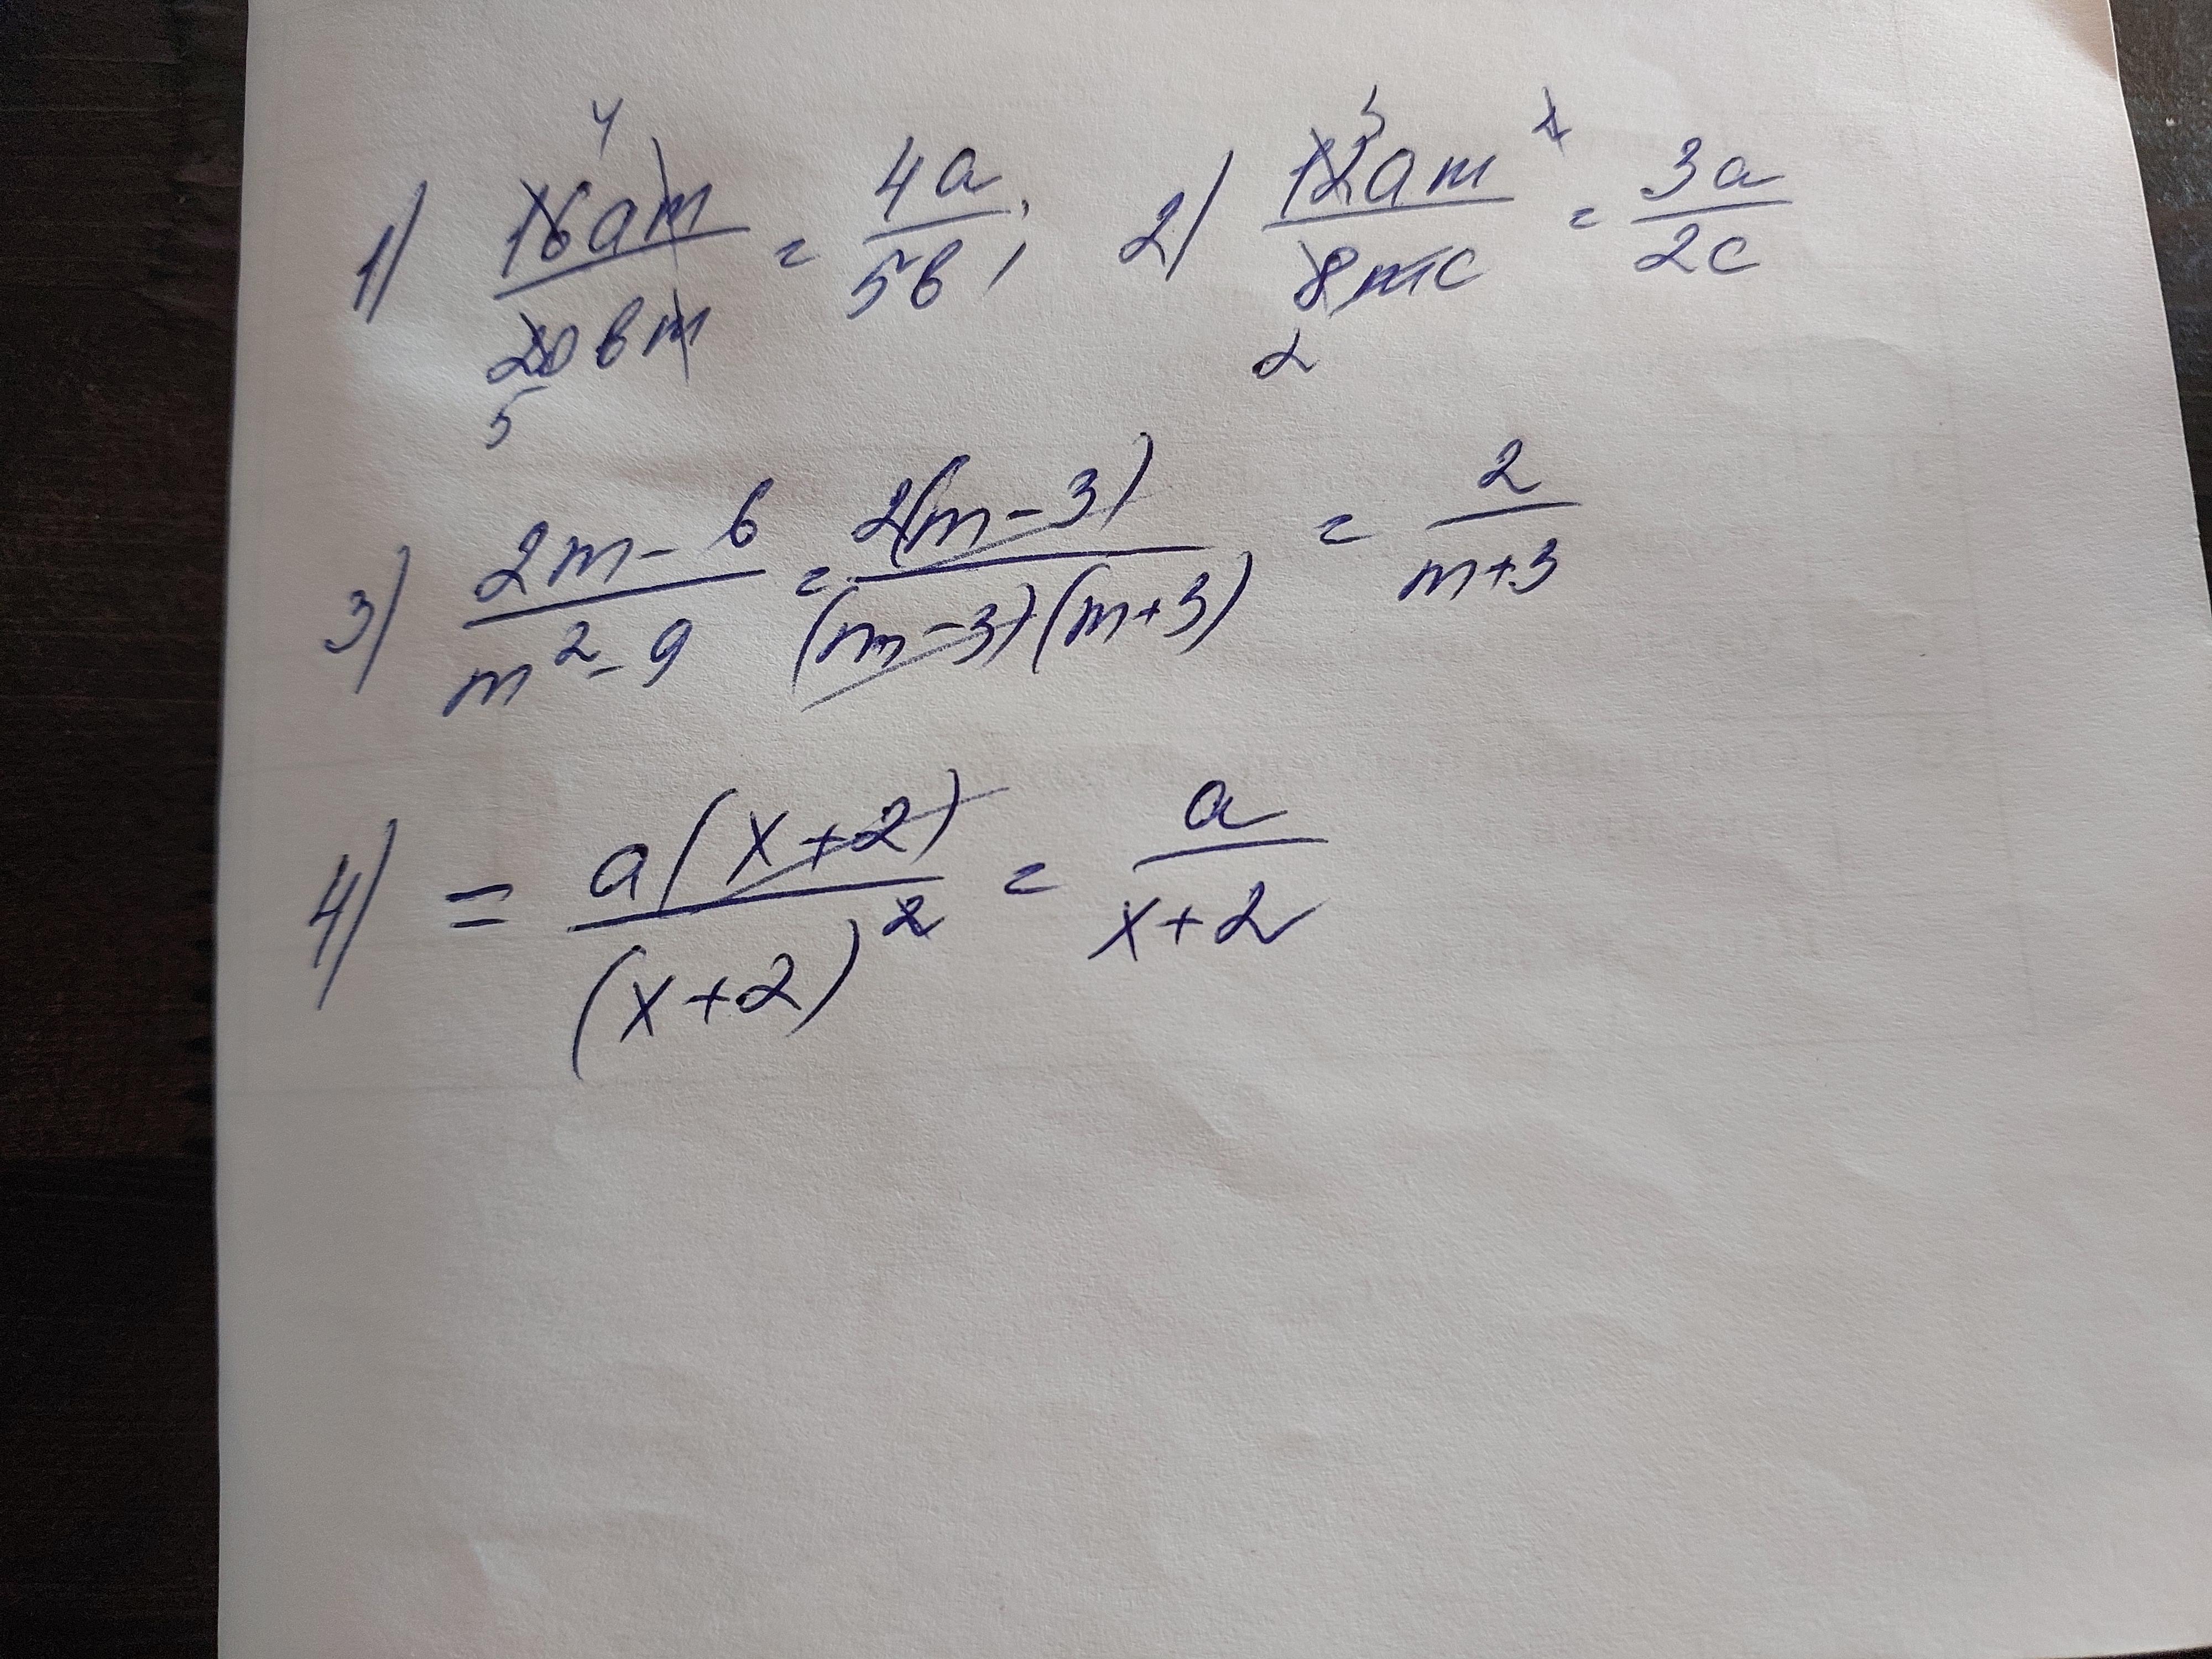 1) 16am/20вm = 4a/5в; 2) 12am²/8mc = 3a/2c
3) 2m-6/m²-9 = 2(m-3)/(m-3)(m+3) = 2/m+3
4) = a(x+2)/(x+2)² = a/x+2